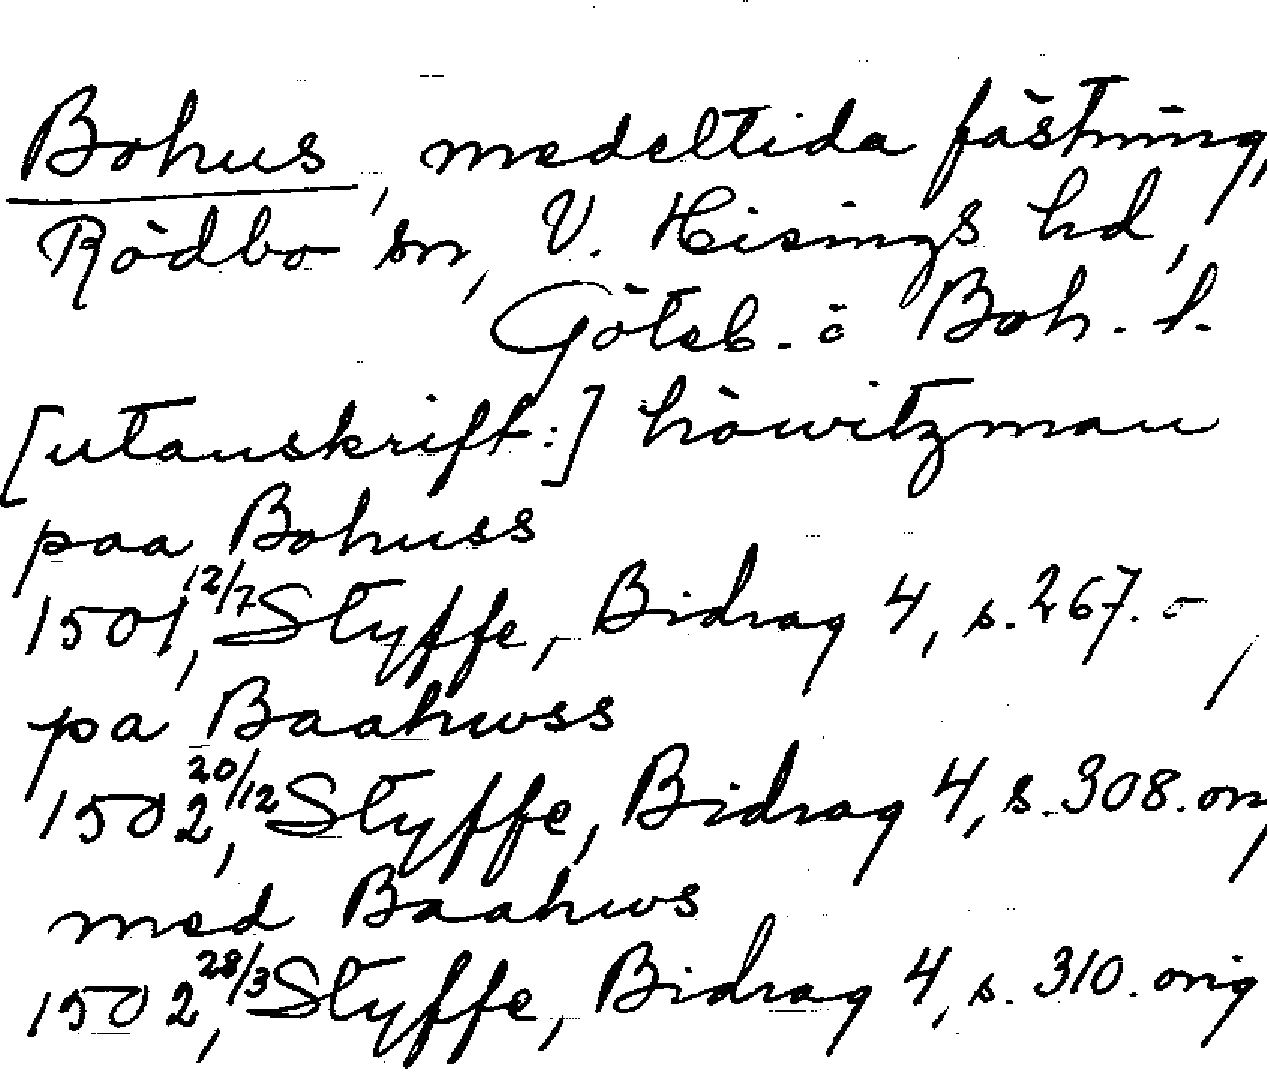 Bohus, medeltida fästning,
Rödbo sn, V. Hisings hd,
Göteb. o Boh. l.
[utanskrift:] höwitzman
paa Bohuss
1501 12/7, Styffe, Bidrag 4, s. 267. o
pa Baahwss
1502 20/12, Styffe, Bidrag 4, s. 308. or
med Baahws
1502 28/3, Styffe, Bidrag 4, s. 310. orig